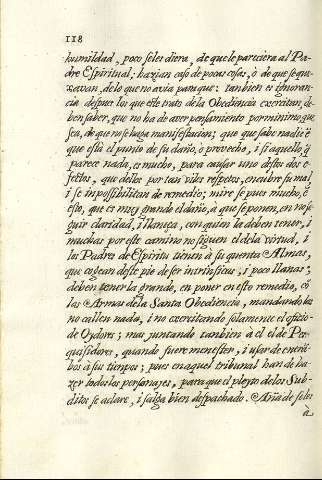 118
humildad, poco se les diera, de que le pareciera al Pa-
dre Espiritual; hazian caso de pocas cosas, ò de que se que-
xavan, de lo que no avia para que: tambien es ignoran-
cia despues los que este trato de la Obediencia exercitan; de-
ben saber, que no ha de aver pensamiento por minimo que
sea, de que no se haga manifestacion; que que sabo nadie è
que està el punto de su daño, o provecho, i si aquello, q̃
parece nada, es mucho, para causar uno destos dos e-
fectos, que dellos por tan viles respetos, encubre su mal
i se inpossibilitan de remedio; mire se pues mucho, è
esto, que es muy grande el daño, a que se ponen, en no se-
guir claridad, i llaneça, con quien la deben tener, i
muchas por este camino no siguen el de la virtud, i
los Padres de Espiritu tienen à su quenta Almas,
que cogean deste pie de ser intrinsicas, i poco llanas;
deben tenerla grande, en poner en esto remedio, cõ
las Armas de la Santa Obediencia, mandandolas
no callen nada, i no exercitando solamente el oficio
de Oydores; mas juntando tambien à el el de Pes-
quisidores, quando fuere menester, i usar de encõ-
bos à sus tiempos; pues en aquel tribunal han de ha-
zer todos los personajes, para que el pleyto de los Sub-
ditos se aclare, i salga bien despachado. Aña de se les
à